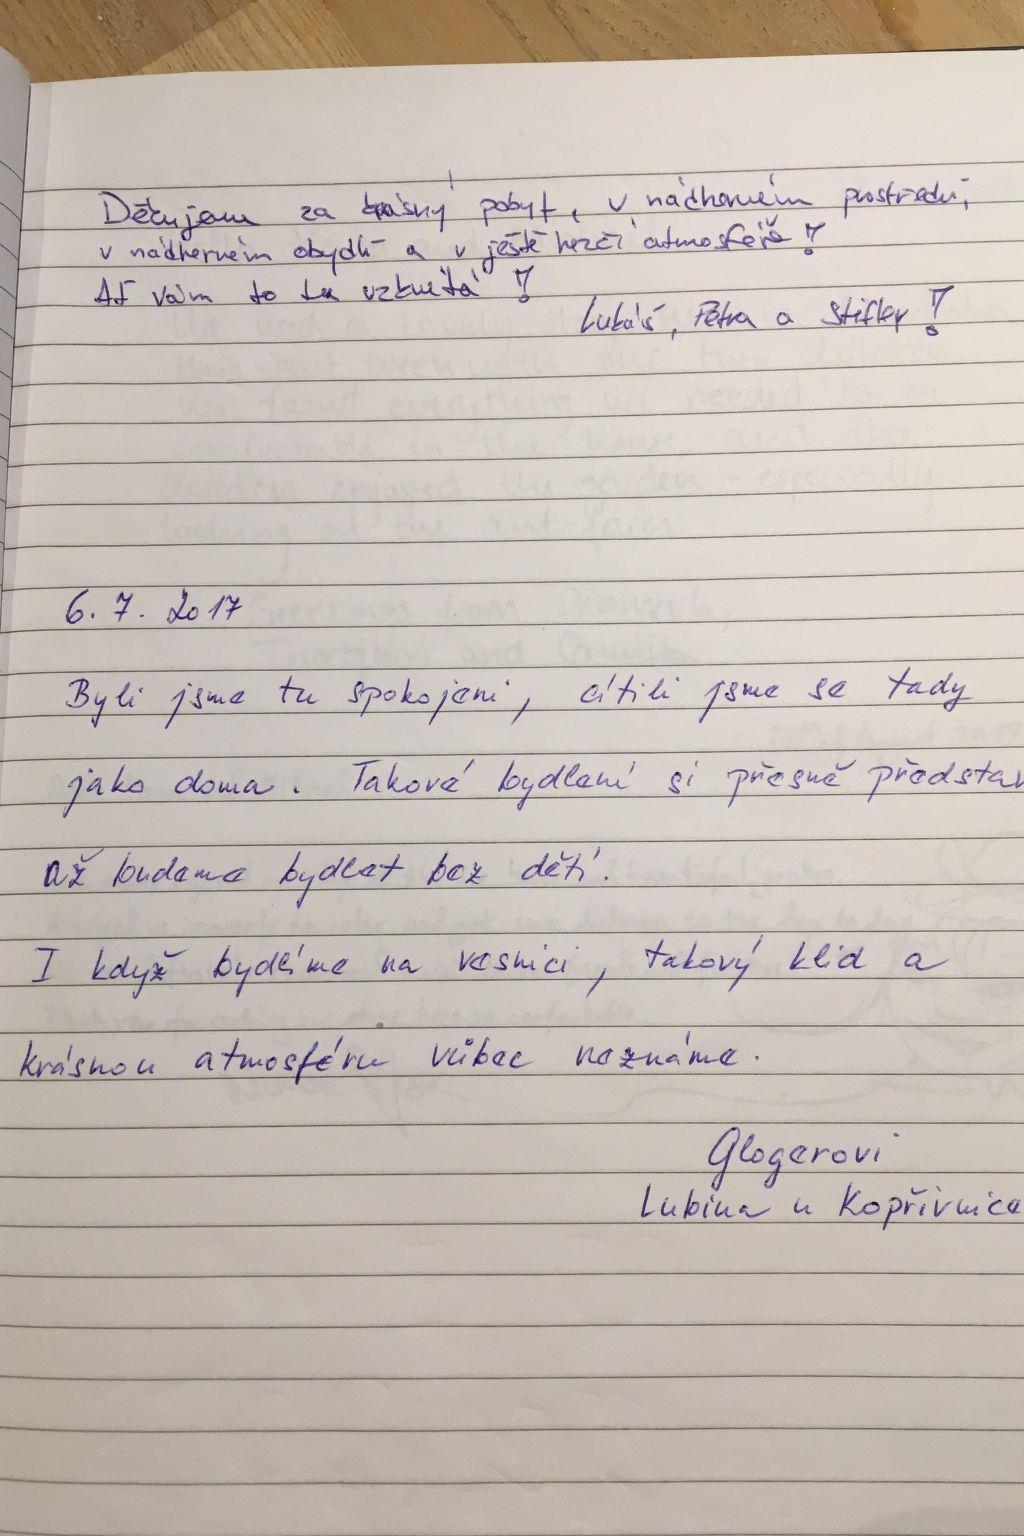 Děkujem za krásný pobyt, v nádherném prostředí,
v nádherném obydlí a v ještě hezčí atmosféře!
Ať vám to tu vzkvétá!
Lukáš, Petra a Stifler!
6. 7. 2017
Byli jsme tu spokojeni, cítili jsme se tady
jako doma. Takové bydlení si přesně představ
až budeme bydlet bez dětí.
I když bydlíme na vesnici, takový klid a
krásnou atmosféru vůbec neznáme.
Glogerovi
Lubina u Kopřivnice